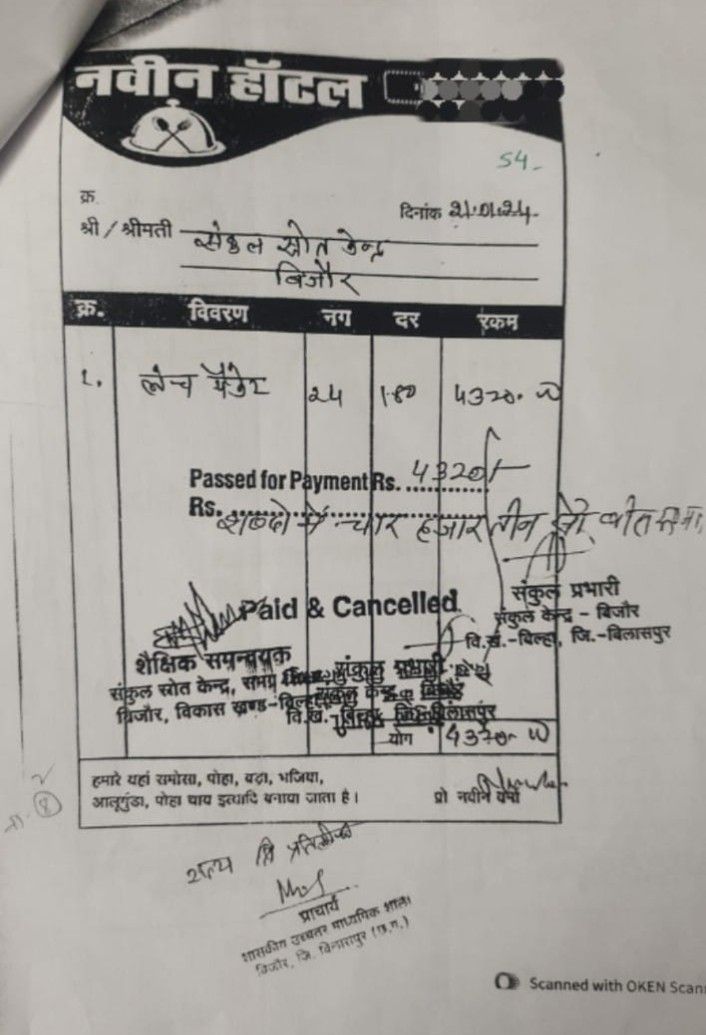 नवीन हॉटल
54-
क्र.
दिनांक 21.01.24-
श्री / श्रीमती संकुल स्रोत केन्द्र
बिजौर
क्र. विवरण नग दर रकम
1. लंच पैकेट 24 180 4320.
Passed for Payment Rs. 4320/-
Rs. शब्दों में चार हजार तीन सौ बीस
संकुल प्रभारी
Paid & Cancelled
संकुल केन्द्र - बिजौर
वि.ख.-बिल्हा, जि.-बिलासपुर
शैक्षिक समन्वयक
संकुल प्रभारी
संकुल स्रोत केन्द्र, समग्र
संकुल केन्द्र
बिजौर, विकास खण्ड-बिल्हा
वि.ख. जि. बिलासपुर
योग 4320.
हमारे यहां समोसा, पोहा, बड़ा, भजिया,
आलूगुंडा, पोहा चाय इत्यादि बनाया जाता है।
प्रो नवीन वर्मा
सत्य प्रतिलिपि
प्राचार्य
शासकीय उच्चतर माध्यमिक शाला
बिजौर, जि. बिलासपुर (छ.ग.)
Scanned with OKEN Scan